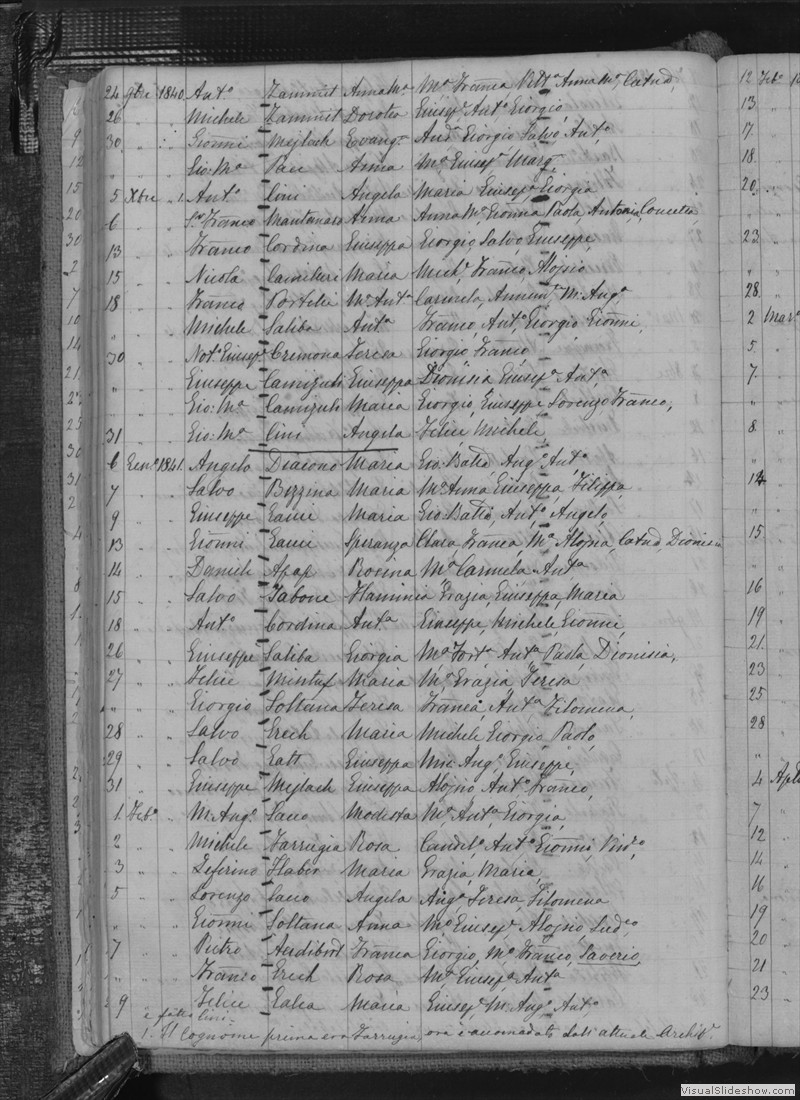 24 9bre 1840 Ant.o Zammit Anna Ma. Ma. Franca Anna Ma.
26 " " Michele Zammit Dorotea Giusep.e Ant.o Giorgio
30 " " Gionni Mejlach Evang.a And.a Giorgio Salvo Ant.o
Gio: Ma. Pace Anna Ma. Giusep.e Marg.
5 Xbre " 1. Ant.o Cini Angela Maria Giusep.e Giorgia
6 " " Franco Mantanaro Anna Anna Ma. Gionna Paola Antonia Concetta
13 " Franco Cordina Giuseppa Giorgio Salvo Giuseppe
15 " Nicola Camilleri Maria Mich.e Franco Alojsio
18 " Franco Portelli Ma. Ant.a Carmela, Annun.ta M. Ang.a
" " Michele Saliba Ant.a Franco, Ant.o Giorgio Gionni,
30 " Not.o Giusep.e Cremona Teresa Giorgio Franco
" " Giuseppe Camizuli Giuseppa Dionisia Giusep.e Ant.a
" " Gio: Ma. Camizuli Maria Giorgio, Giuseppe Lorenzo Franco,
31 " Gio: Ma. Cini Angela Felice, Michele,
6 Gen.o 1841. Angelo Diacono Maria Gio Batta Aug.o Ant.o
7 " " Salvo Bezzina Maria Ma. Anna Giuseppa, Filippa,
9 " " Giuseppe Gauci Maria Gio. Batta, Ant.o Angelo,
13 " " Gionni Gauci Speranza Clara, Franca, Ma. Alojsia, Catud Dionisia
14 " " Daniele Apap Rosina Ma. Carmela Ant.a
15 " " Salvo Tabone Flaminia Grazia, Giuseppa, Maria
18 " " Ant.o Cordina Ant.a Giuseppe, Michele, Gionni,
26 " " Giuseppe Saliba Giorgia Ma. Fort.a Ant.a Paola Dionisia,
27 " " Felice Mintuf Maria Ma. Grazia Teresa
" " Giorgio Soltana Teresa Franca, Ant.a Filomena,
28 " " Salvo Grech Maria Michele Giorgio, Paolo,
29 " " Salvo Gatt Giuseppa Ang.o Giuseppe,
31 " " Giuseppe Mejlach Giuseppa Alojsio Ant.o Franco,
1. Feb.o " M. Aug.o Sacco Modesta Ma. Ant.a Giorgia,
2 " " Michele Farrugia Rosa Candel.o Ant.o Gionni,
3 " " Zeferino Haber Maria Grazia, Maria,
5 " " Lorenzo Sacco Angela Aug.o Teresa Filomena
" " Gionni Soltana Anna Ma. Giusep.e Alojsio,
7 " " Pietro Audibert Franca Giorgio, Ma. Franco, Saverio
" " Franco Grech Rosa Ma. Giusep.a Ant.a
9 " " Felice Galea Maria Giusep.e M. Aug.o Ant.o
è fatto Cini
1. Il Cognome prima era Farrugia, ora è accomodato dall' attuale Archiv.o
12 Feb.o
13
17
18
20
23
28
2 Mar.o
5
7
8
14
15
16
19
21
23
25
28
4 Aple
7
12
14
16
19
20
21
23
VisualSlideshow.com